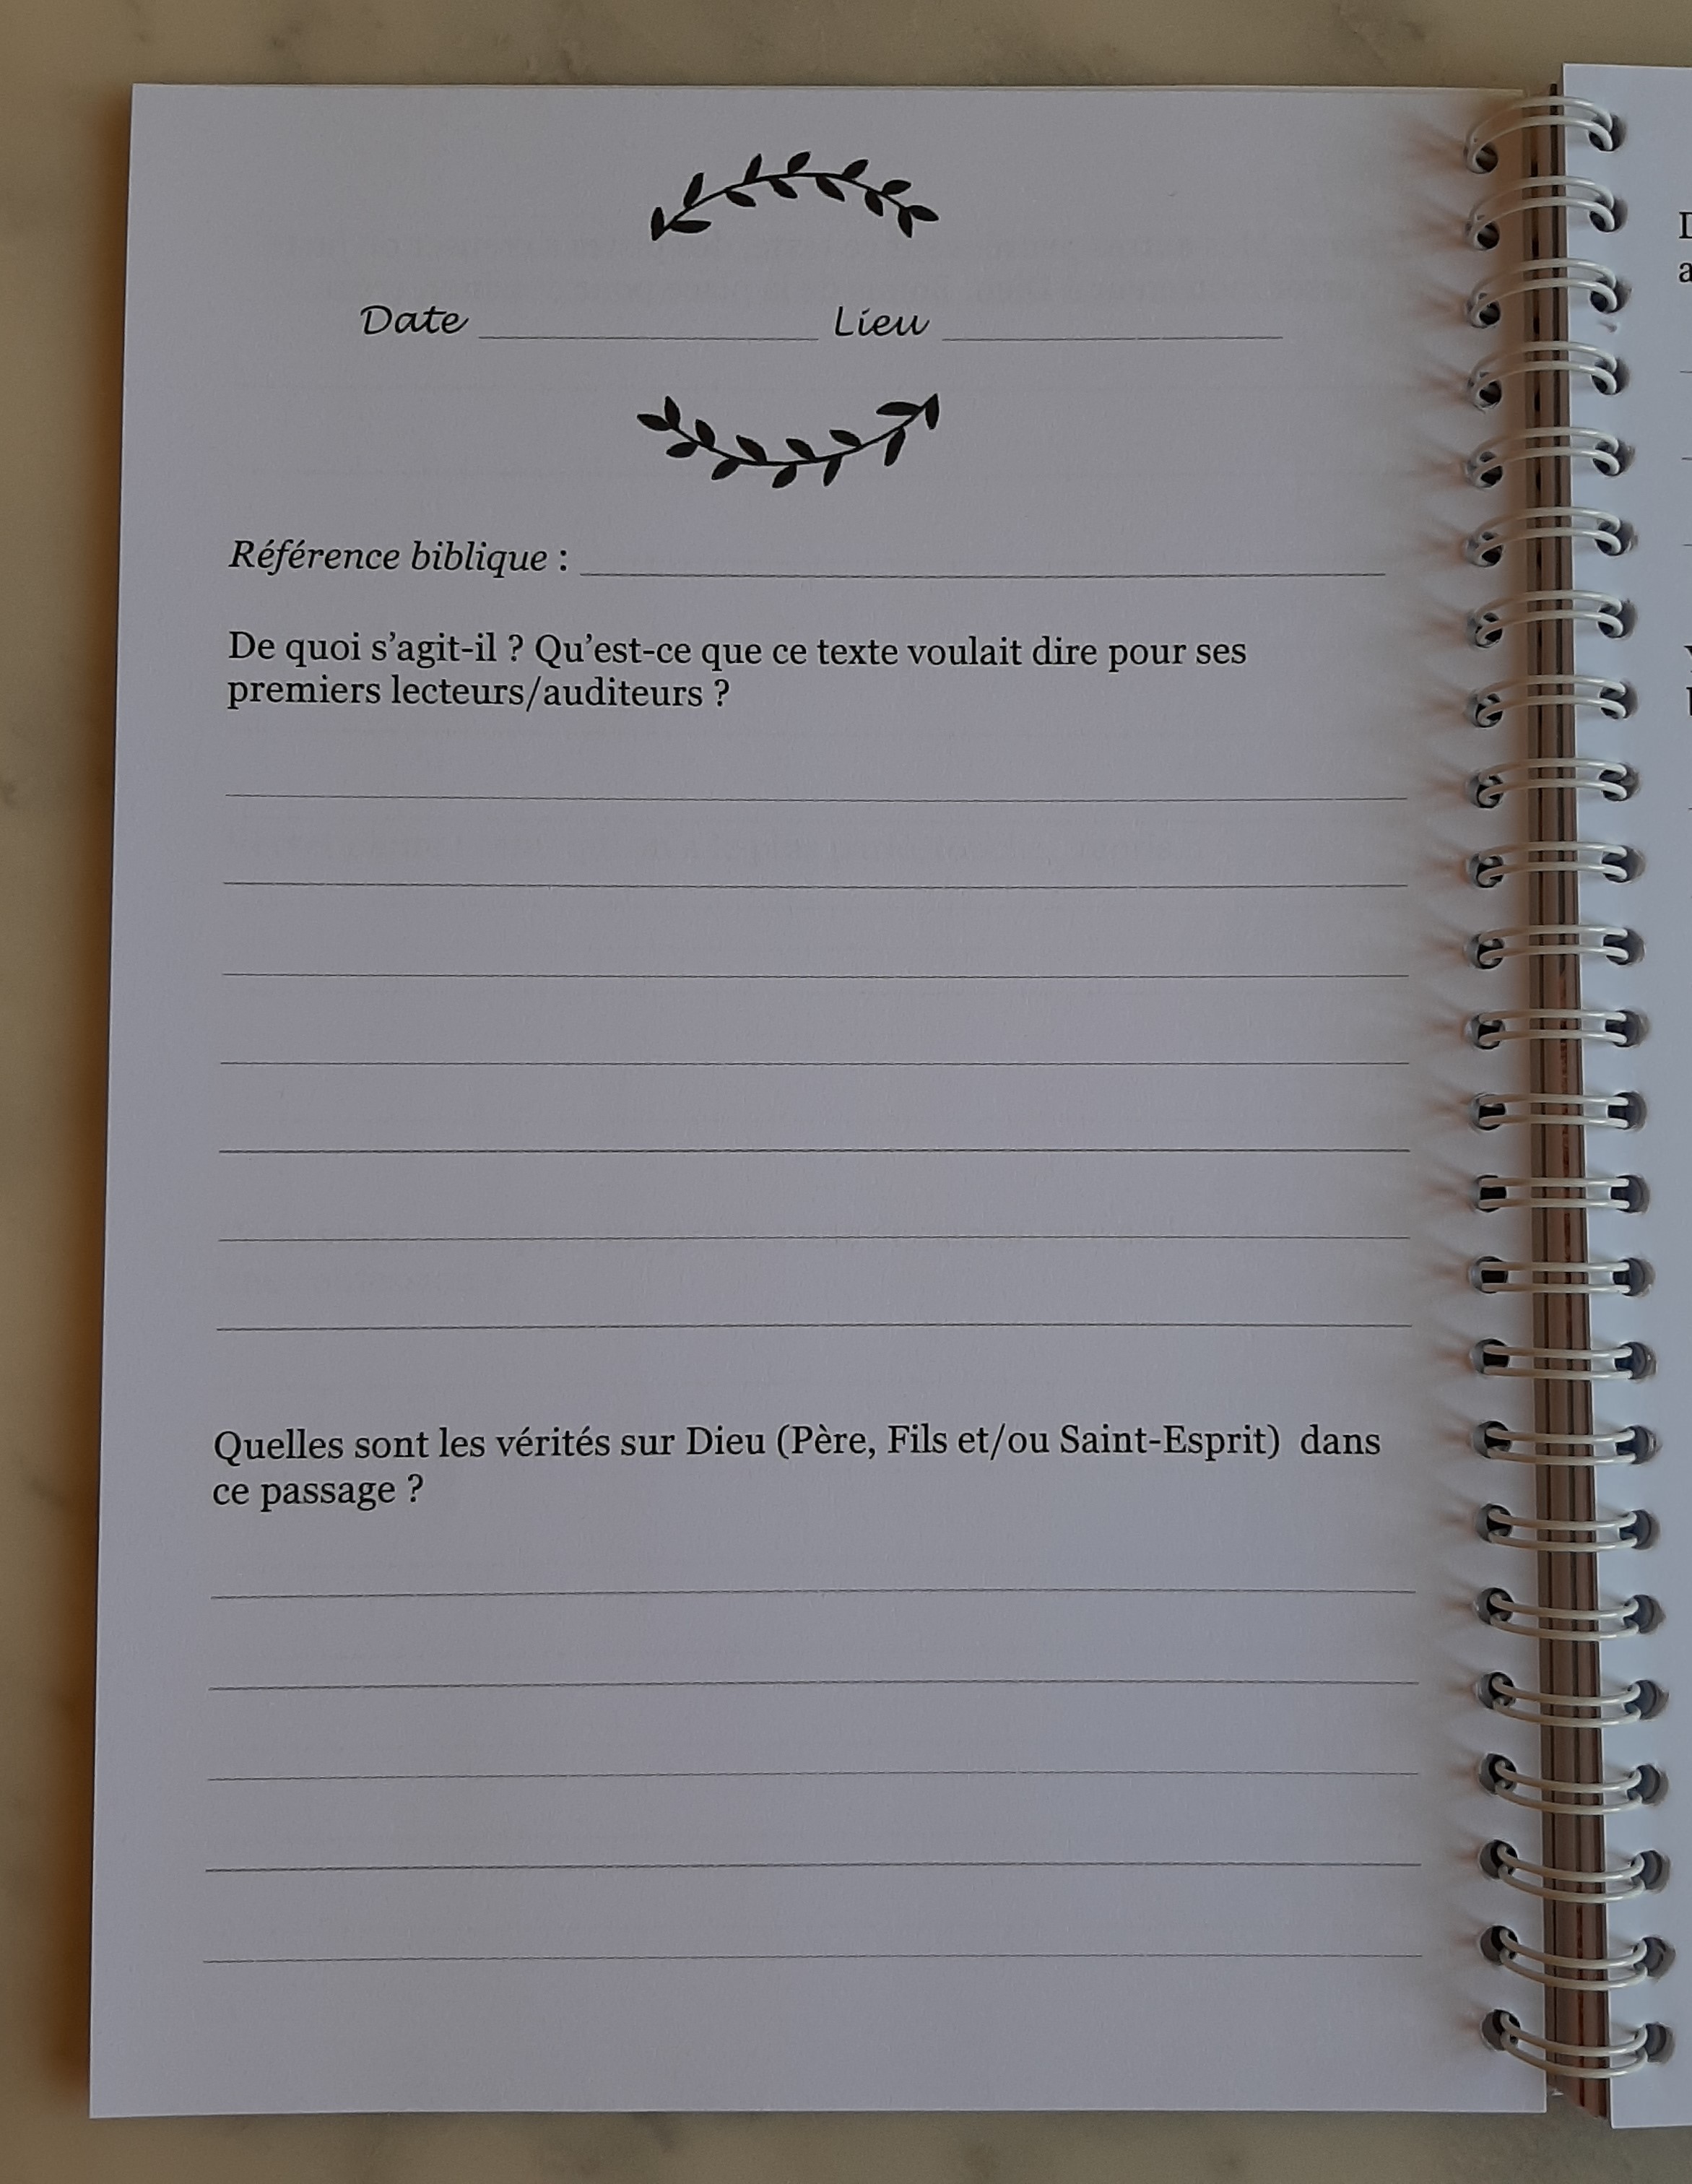 Date Lieu
Référence biblique :
De quoi s’agit-il ? Qu’est-ce que ce texte voulait dire pour ses
premiers lecteurs/auditeurs ?
Quelles sont les vérités sur Dieu (Père, Fils et/ou Saint-Esprit) dans
ce passage ?